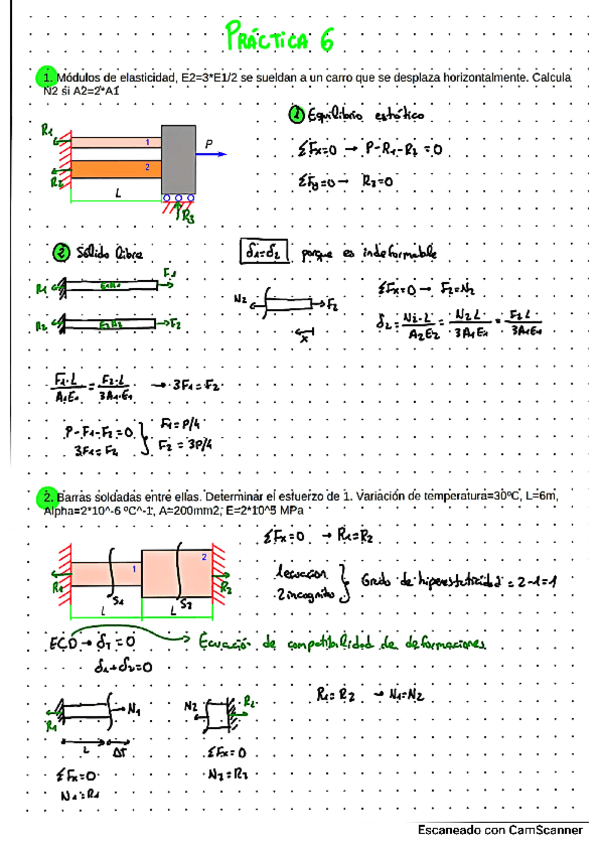 PRÁCTICA 6
1. Módulos de elasticidad, E2=3*E1/2 se sueldan a un carro que se desplaza horizontalmente. Calcula
N2 si A2=2*A1
① Equilibrio estático
R1 1 P
ΣFx=0 → P-R1-R2=0
R2 2
ΣFy=0 → R3=0
L
R3
② Sólido libre
δ1=δ2 porque es indeformable
R1 E1A1 F1
N2 F2
ΣFx=0 → F2=N2
R2 E2A2 F2
x
δ2 = N2·L / A2E2 = N2L / 3A1E1 = F2L / 3A1E1
F1·L / A1E1 = F2·L / 3A1·E1 → 3F1=F2
P-F1-F2=0 } F1=P/4
3F1=F2 } F2=3P/4
2. Barras soldadas entre ellas. Determinar el esfuerzo de 1. Variación de temperatura=30ºC, L=6m,
Alpha=2*10^-6 ºC^-1, A=200mm2, E=2*10^5 MPa
ΣFx=0 → R1=R2
1 2
R1 S1 S2 R2
L L
1 ecuacion
2 incognitas } Grado de hiperestaticidad = 2-1=1
ECD → δT=0 → Ecuación de compatibilidad de deformaciones
δ1+δ2=0
R1 N1
N2 R2
R1=R2 → N1=N2
L ΔT
ΣFx=0
N1=R1
ΣFx=0
N2=R2
Escaneado con CamScanner